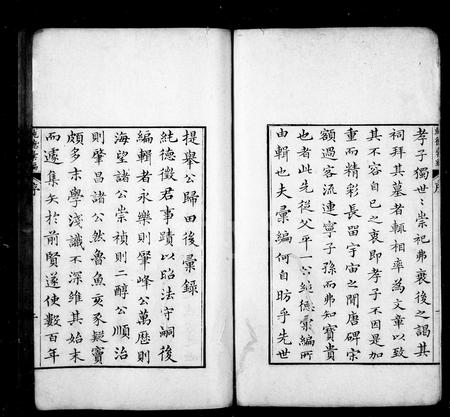 孝子獨世世崇祀弗衰後之謁其
祠拜其墓者輒相率為文章以致
其不容自已之衷即孝子不因是加
重而精彩長留宇宙之間唐碑宗
額過客流連寧子孫而弗知寶貴
也者此先從父平一公純德彙編所
由輯也夫彙編何自昉乎先世
提舉公歸田後彙錄
純德徵君事蹟以昭法守嗣後
編輯者永樂則肇峰公萬歷則
海望諸公崇禎則二酵公順治
則肇昌諸公然魯魚亥豕疑竇
頗多末學淺識不深維其始末
而遽集矢於前賢遂使數百年